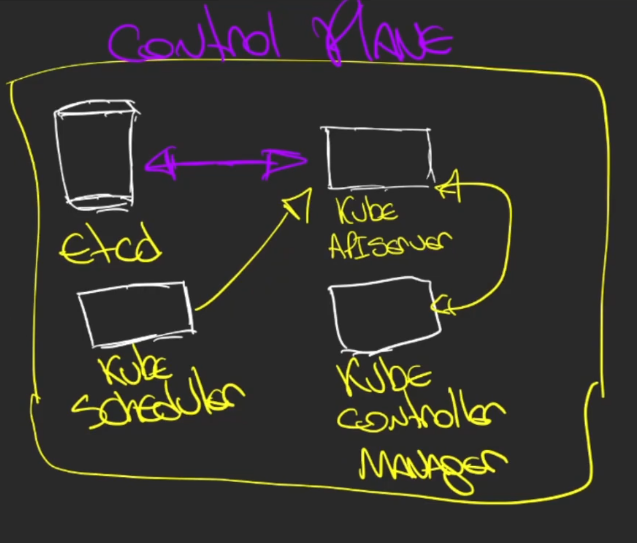 Control PLANE
Etcd
Kube
APIServer
Kube
Scheduler
Kube
Controller
MANAGER